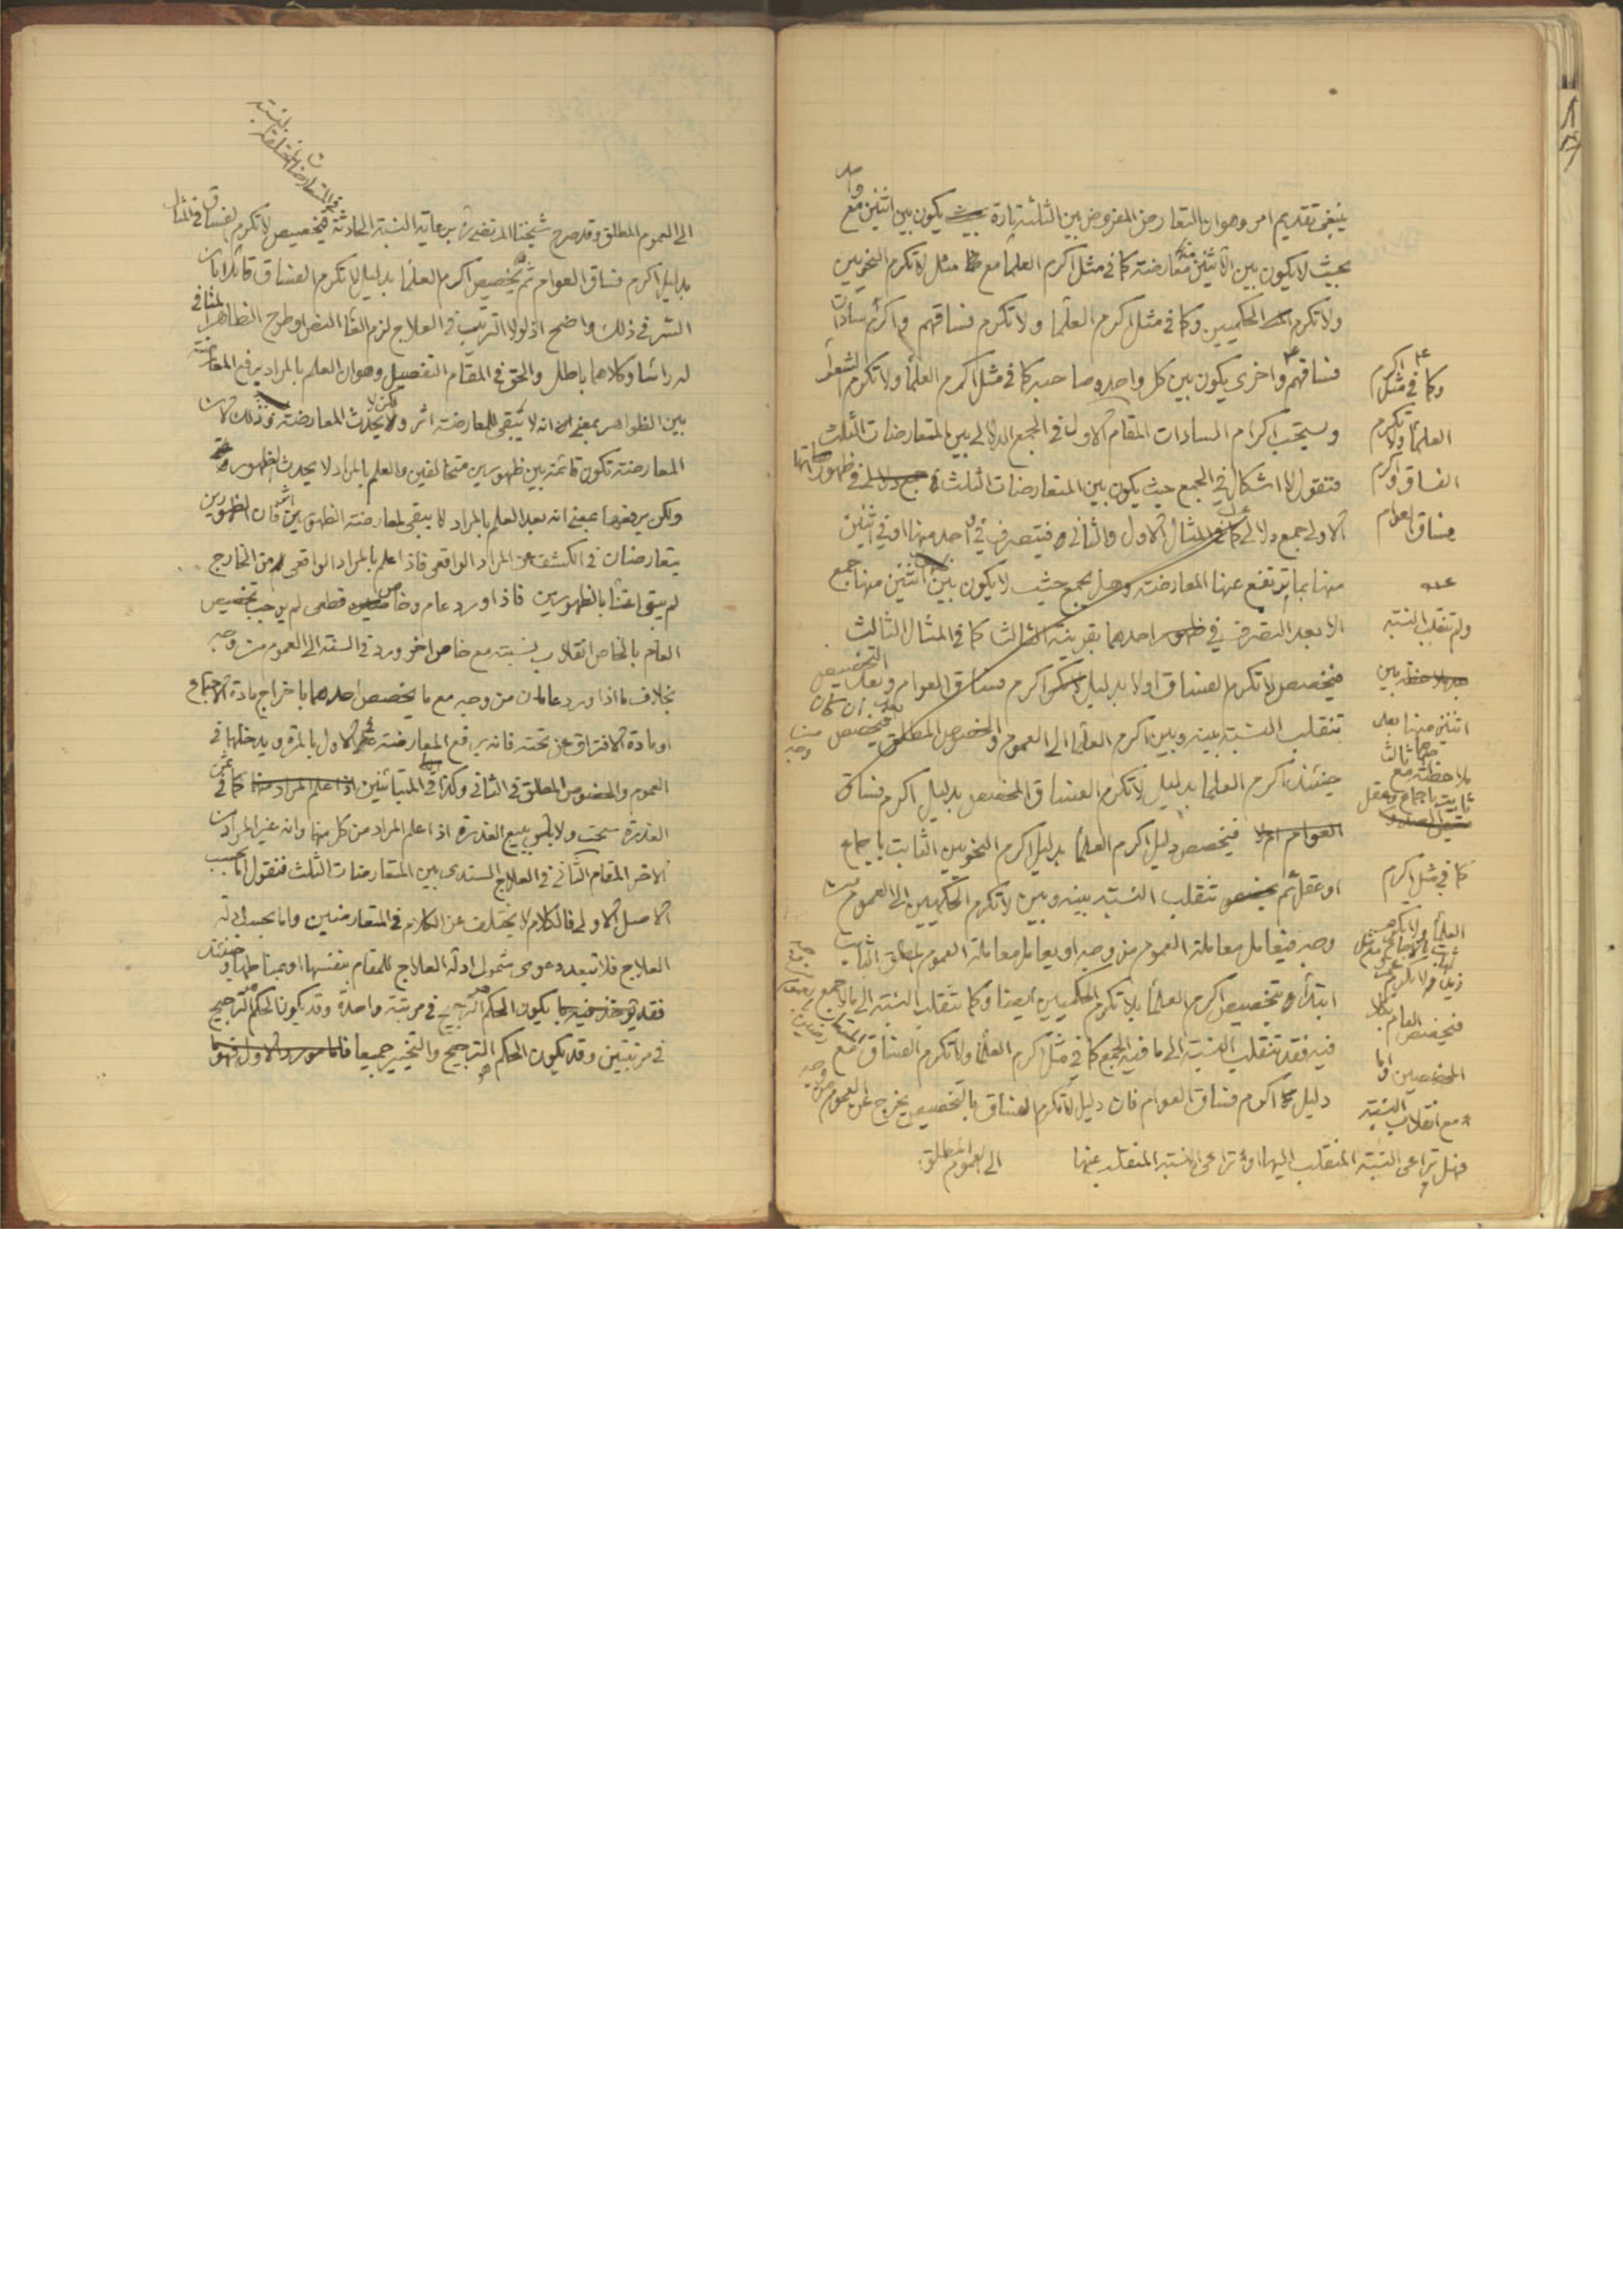 واحد
ينبغى تقديم امر وهو ان التعارض المفروض بين الثلثة تارة يكون بين اثنين مع
بحيث لا يكون بين الاثنين منها معارضة كما فى مثل اكرم العلما مع مثل لا تكرم النحويين
ولا تكرم الحكميين وكما فى مثل اكرم العلما ولا تكرم فساقهم واكرم سادات
فساقهم واخرى يكون بين كل واحد وصاحبه كما فى مثل اكرم العلما ولا تكرم الشعراء
ويستحب اكرام السادات المقام الاول فى الجمع الدلالى بين المتعارضات الثلث
فنقول لا اشكال فى الجمع حيث يكون بين المتعارضات الثلث فى ظهوراتها
الاولى جمع دلالى كما فى المثال الاول والثانى فيتصرف فى احد منها او فى اثنين
منها بما يرتفع عنها المعارضة وهل يجمع حيث لا يكون بين اثنين منها جمع
الا بعد التصرف فى ظهور احدهما بقرينة الثالث كما فى المثال الثالث
فيخصص لا تكرم الفساق اولا بدليل اكرم فساق العوام وبعد التخصيص
تنقلب النسبة بينه وبين اكرم العلما الى العموم والخصوص المطلق فيخصص
حينئذ اكرم العلما بدليل لا تكرم الفساق المخصص بدليل اكرم فساق
العوام اولا فيخصص دليل اكرم العلما بدليل اكرم النحويين الثابت باجماع
او عقل ثم تنقلب النسبة بينه وبين لا تكرم الحكميين الى العموم من
وجه فيعامل معاملة العموم من وجه او يعامل معاملة العموم المطلق الثابت
ابتداء بتخصيص اكرم العلما بلا تكرم الحكميين ايضا وكما تنقلب النسبة الى ما لا جمع
فيه فقد تنقلب النسبة الى ما فيه الجمع كما فى مثل اكرم العلما ولا تكرم الفساق مع
دليل اكرم فساق العوام فان دليل لا تكرم الفساق بالتخصيص يخرج عن العموم من وجه
الى العموم المطلق
وكما فى مثل اكرم
العلما ولا تكرم
الفساق واكرم
فساق العوام
ولم تنقلب النسبة
بين
اثنين منها بعد
ملاحظته مع ثالث
ثابت باجماع وعقل
كما فى مثل اكرم
فيخصص العام بكلا
المخصصين واما
مع انقلاب النسبة
فهل تراعى النسبة المنقلب اليها او تراعى النسبة المنقلب عنها
الى العموم المطلق وقد صرح شيخنا المرتضى برعاية النسبة الحادثة فيخصيص لا تكرم الفساق فى المثال
بدليل اكرم فساق العوام ثم يخصص اكرم العلما بدليل لا تكرم الفساق قائلا بان
السر فى ذلك واضح اذ لولا الترتيب فى العلاج لزم الغاء النص او طرح الظاهر المنافى
له رأسا وكلاهما باطل والحق فى المقام التفصيل وهو ان العلم بالمراد يرفع المعارضة
بين الظواهر بمعنى انه لا تبقى للمعارضة اثر ولكن لا يحدث المعارضة وذلك لان
المعارضة تكون قائمة بين ظهورين متخالفين والعلم بالمراد لا يحدث الظهور
ولكن يرفعها بمعنى انه بعد العلم بالمراد لا يبقى لمعارضة الظهورين اثر فان الظهورين
يتعارضان فى الكشف عن المراد الواقعى فاذا علم بالمراد الواقعى من الخارج
لم يبق اعتناء بالظهورين فاذا ورد عام وخاص قطعى لم يوجب تخصيص
العام بالخاص انقلاب نسبته مع خاص اخر ورد فى السنة الى العموم من وجه
بخلاف ما اذا ورد عامان من وجه مع ما يخصص احدهما باخراج مادة الاجتماع
او مادة الافتراق عن تحته فانه يرفع المعارضة فى الاول بالمرة ويدخلها فى
العموم والخصوص المطلق فى الثانى وكذا فى المتباينين كما فى ثمن
العذرة سحت ولا بأس ببيع العذرة اذا علم المراد من كل منها وانه غير المراد من
الاخر المقام الثانى فى العلاج السندى بين المتعارضات الثلث فنقول اما بحسب
الاصل الاولى فالكلام لا يختلف عن الكلام فى المتعارضين واما بحسب ادلة
العلاج فلا تبعد دعوى شمول ادلة العلاج للمقام بنفسها او بمناطها وحينئذ
فقد يكون الحكم هو الترجيح فى مرتبة واحدة وقد يكون الحكم هو الترجيح
فى مرتبتين وقد يكون الحكم هو الترجيح والتخيير جميعا